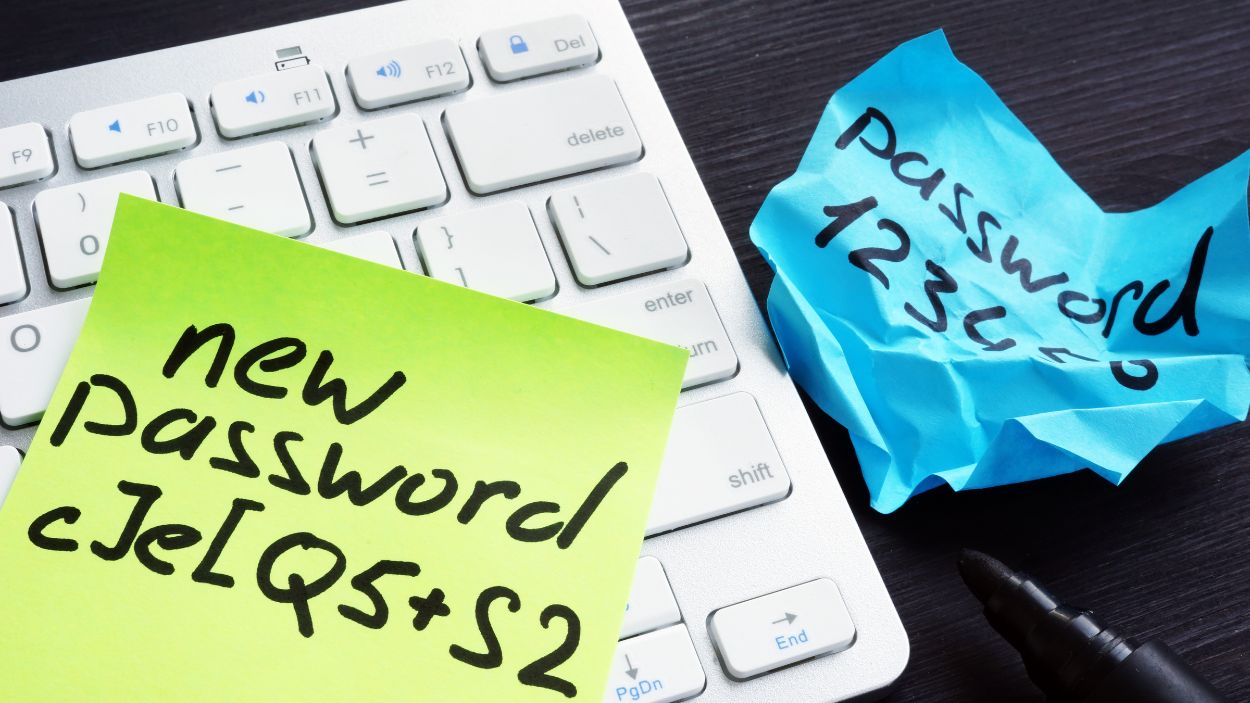 F9
F10
F11
F12
Del
delete
)
0
—
-
+
=
}
]
|
\
O
enter
shift
End
PgDn
new
password
c]e[Q5+S2
password
123456